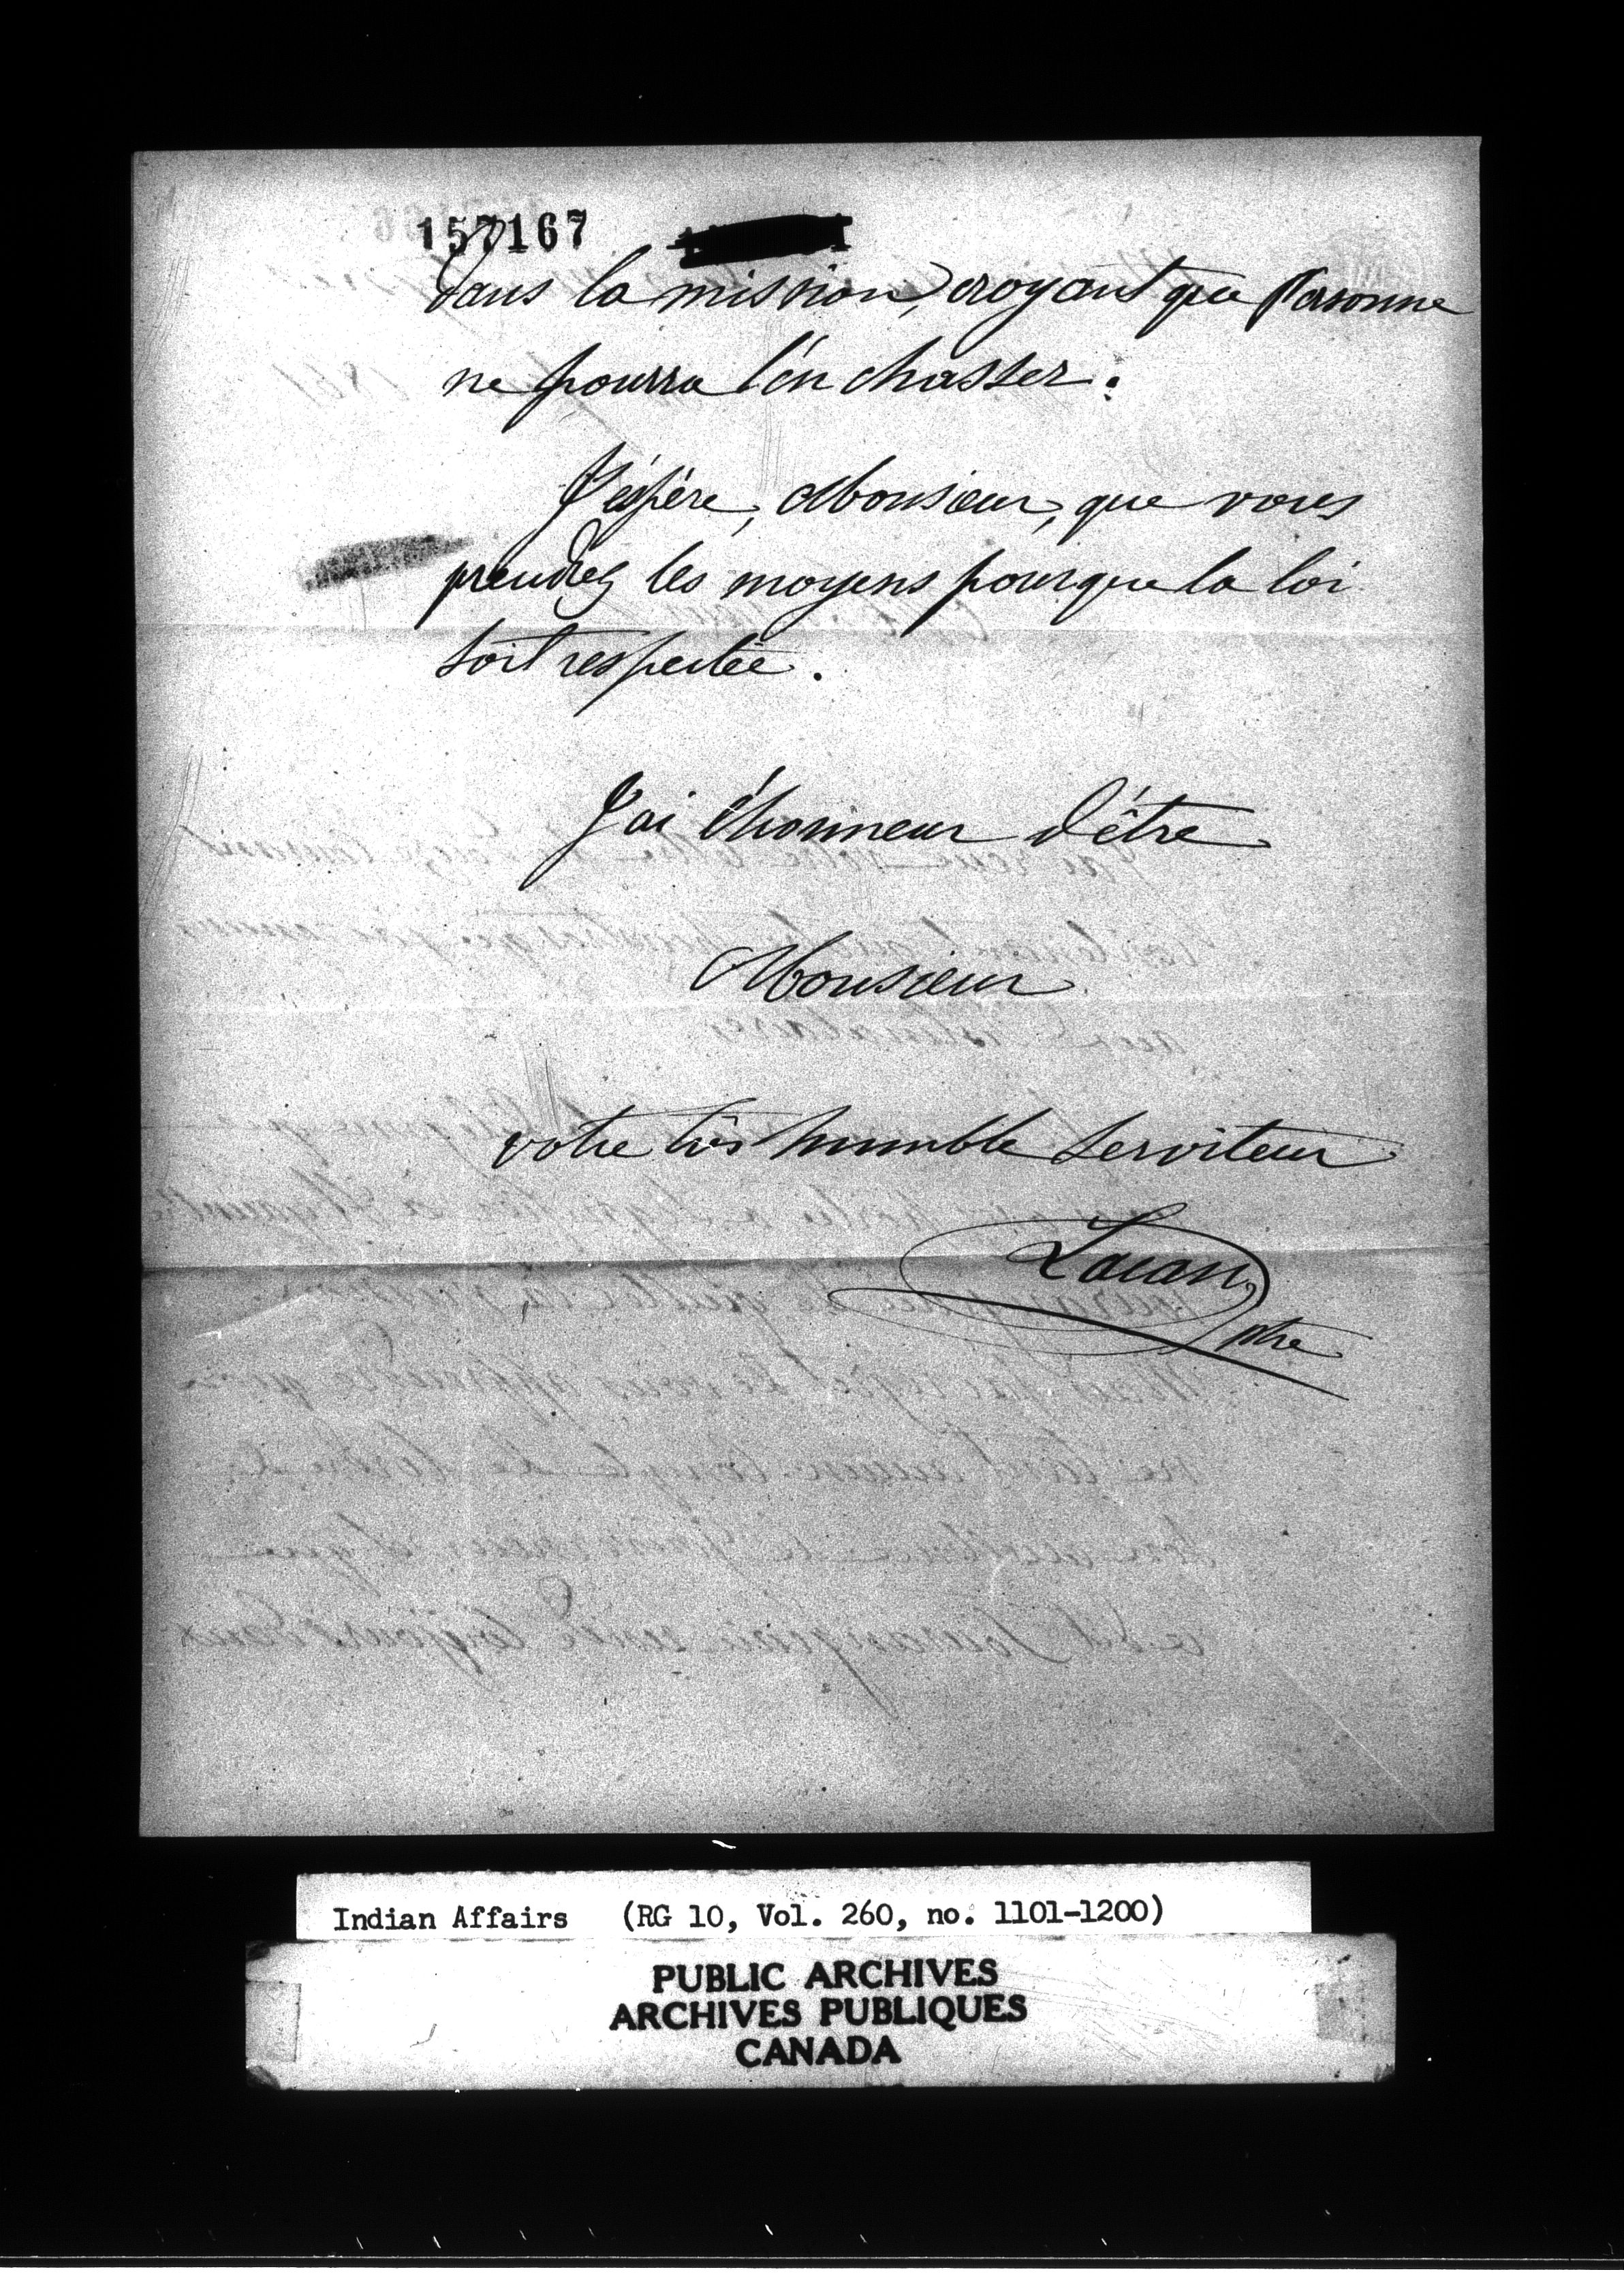 157167
dans la mission, croyant que Personne
ne pourra l'en chasser.
J'espère, Monsieur, que vous
prendrez les moyens pourque la loi
soit respectée.
J'ai l'honneur d'être
Monsieur
votre très humble serviteur
Lacan
ptre
Indian Affairs (RG 10, Vol. 260, no. 1101-1200)
PUBLIC ARCHIVES
ARCHIVES PUBLIQUES
CANADA